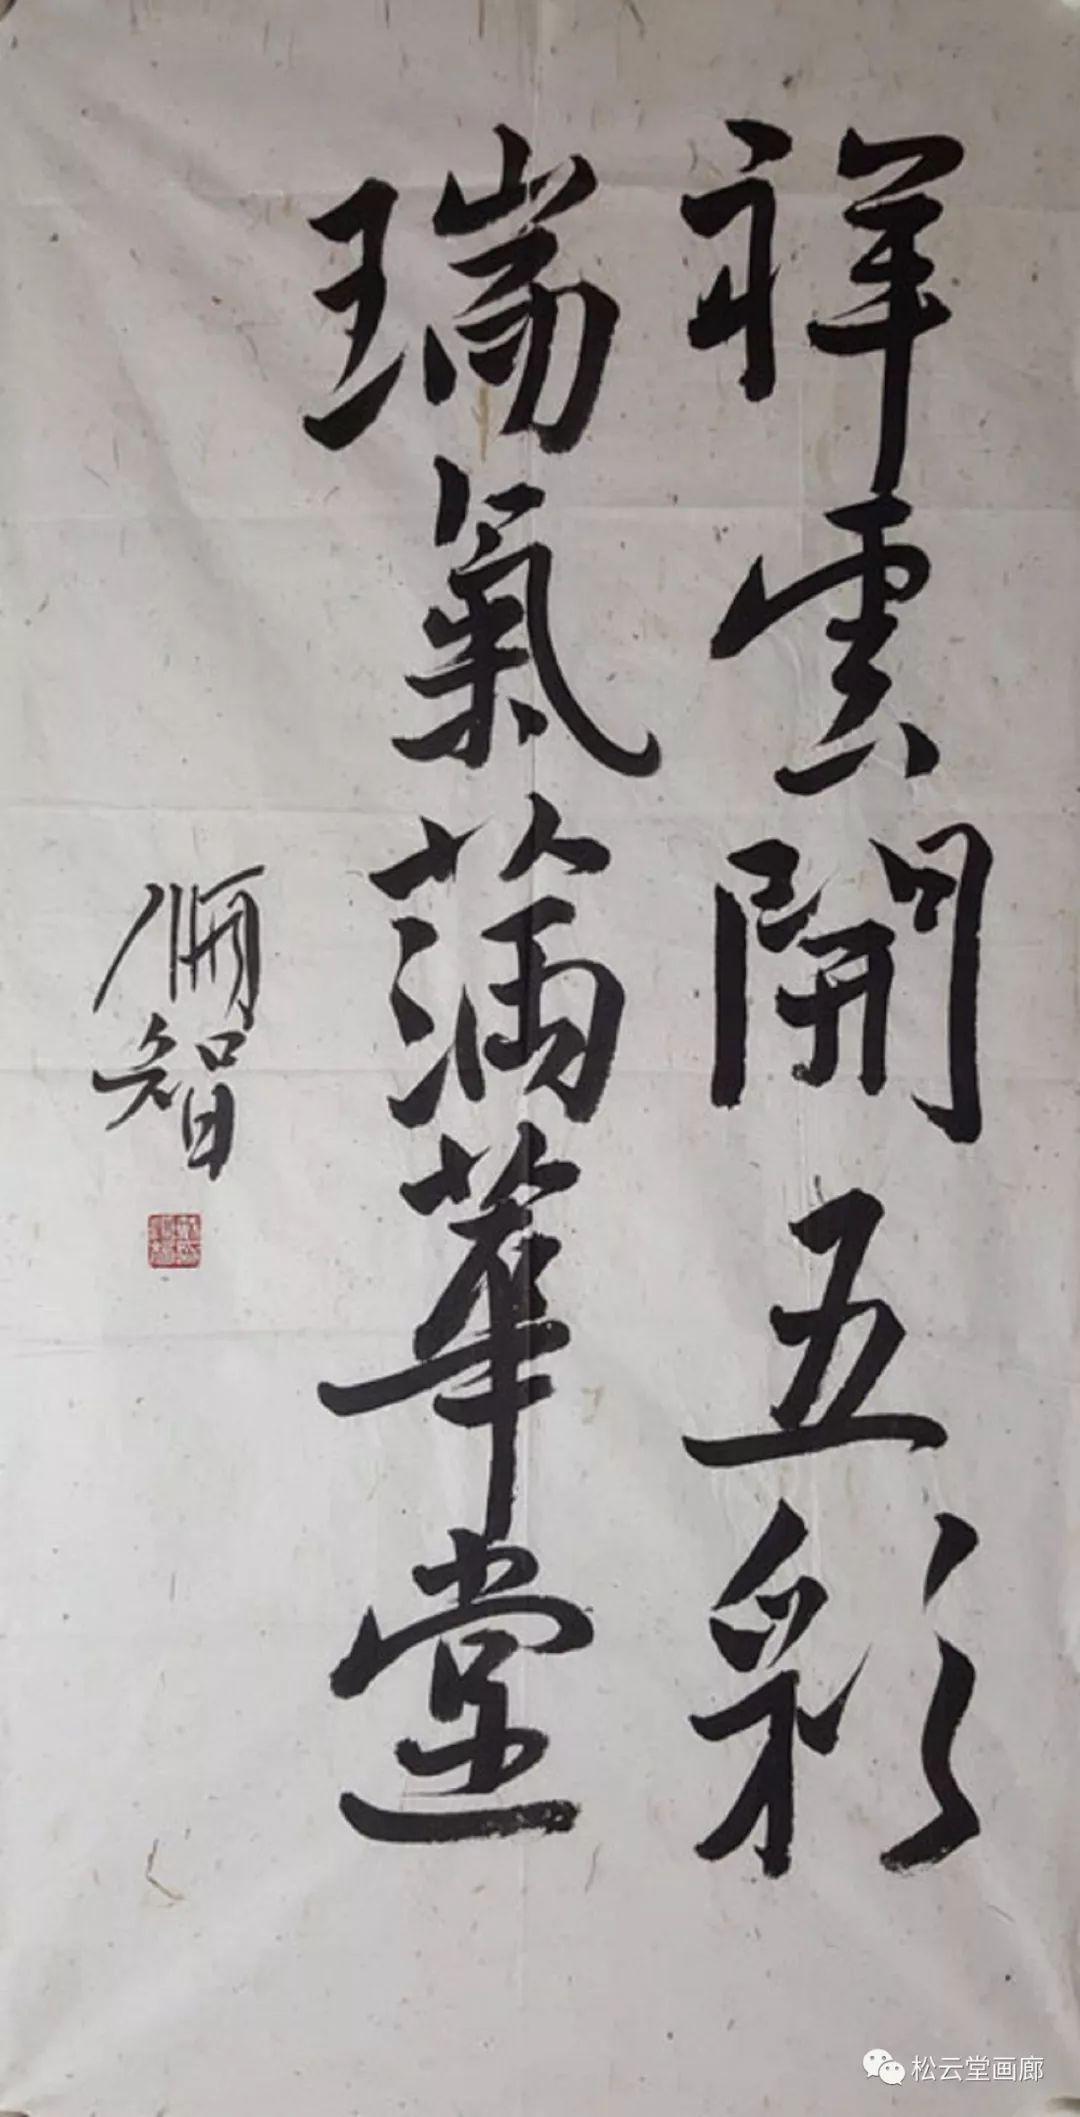 祥雲開五彩
瑞氣蒲華堂
佩智
松云堂画廊